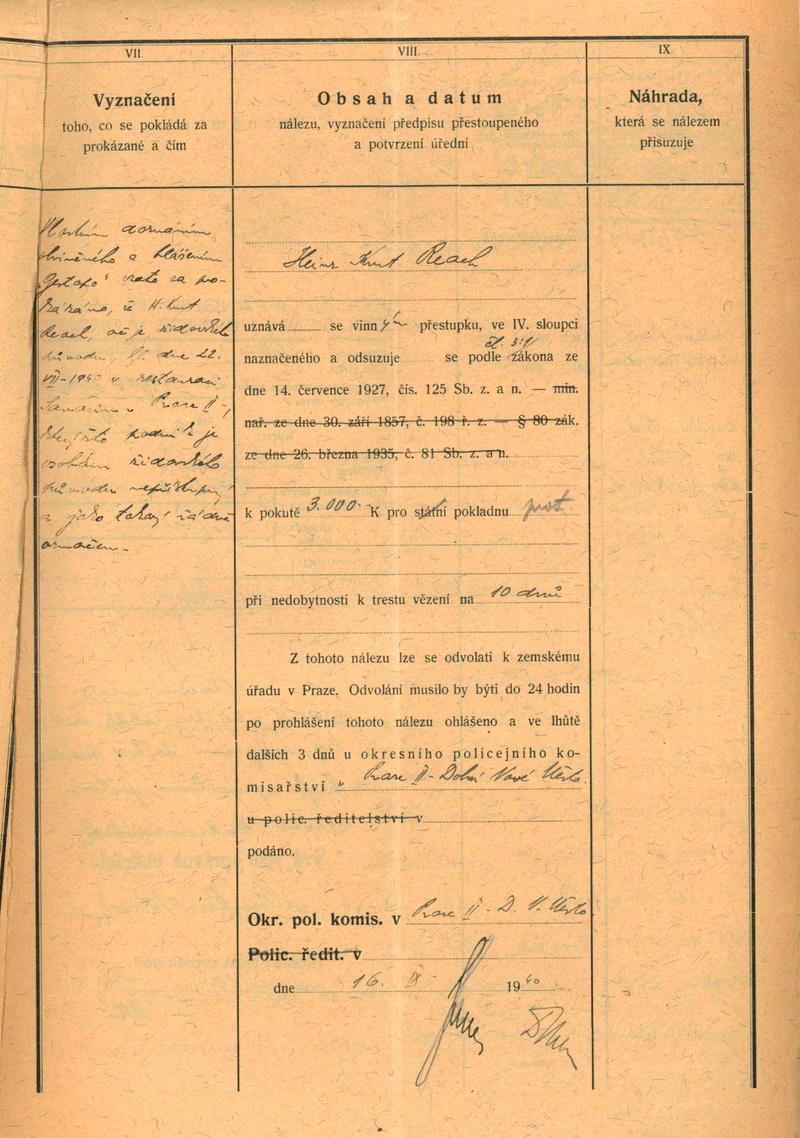 VII.
Vyznačení
toho, co se pokládá za
prokázané a čím
doznáním
obviněného a hlášením
"Gestapo" vzato za pro-
kázáno, že H. Kurt
Reach, ač je židovského
původu, dne 22.
VII-1940 v restauraci
v Praze II-,
kterýžto podnik je
osobám židovského
původu nepřístupný
a jako takový řádně
označen.-
VIII.
Obsah a datum
nálezu, vyznačení předpisu přestoupeného
a potvrzení úřední
Heinz Kurt Reach
uznává se vinným přestupku, ve IV. sloupci
čl. 3/1
naznačeného a odsuzuje se podle zákona ze
dne 14. července 1927, čís. 125 Sb. z. a n. — min.
nař. ze dne 30. září 1857, č. 198 ř. z. — § 80 zák.
ze dne 26. března 1935, č. 81 Sb. z. a n.
k pokutě 3.000.- K pro státní pokladnu prot.
při nedobytnosti k trestu vězení na 10 dnů
Z tohoto nálezu lze se odvolati k zemskému
úřadu v Praze. Odvolání musilo by býti do 24 hodin
po prohlášení tohoto nálezu ohlášeno a ve lhůtě
dalších 3 dnů u okresního policejního ko-
misařství v Praze II- Dolní Nové Město.
u polic. ředitelství v
podáno.
Okr. pol. komis. v Praze II - D. N. Město
Polic. ředit. v
dne 16. IX- 1940
IX.
Náhrada,
která se nálezem
přisuzuje